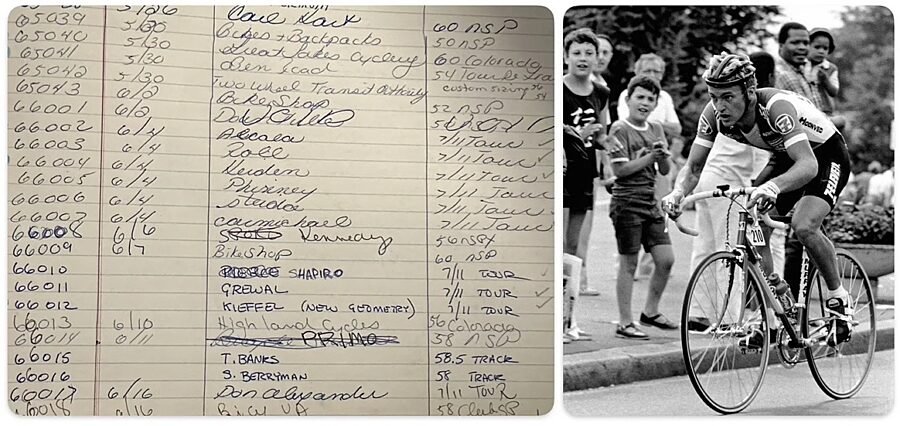 65039 5/26 Carl
65040 5/30 Bikes + Backpacks 60 NSP
65041 5/30 Great Lakes Cycling 50 NSP
65042 5/30 Ben 60 Colorado
65043 6/2 Two Wheel Transit Authority 54 Tour de
custom sizing 56
54
66001 6/2 Bike Shop 52 NSP
66002 6/4
66003 6/4 Alcala 7/11 Tour ✓
66004 6/4 7/11 Tour ✓
66005 6/4 Heiden 7/11 Tour
66006 6/4 Phinney 7/11 Tour
66007 6/4 7/11 Tour
66008 6/6 Carmichael 7/11 Tour
66009 6/7 Kennedy 56 NSX
Bikeshop 60 NSP
66010 SHAPIRO 7/11 TOUR
66011 GREWAL 7/11 TOUR ✓
66012 KIEFFEL (NEW GEOMETRY) 7/11 TOUR ✓
66013 6/10 Highland Cycles 56 Colorado
66014 6/11 PRIMO 58 NSP
66015 T. BANKS 58.5 TRACK
66016 S. BERRYMAN 58 TRACK
66017 6/16 Don Alexander 7/11 TOUR
66018 6/16 58
210